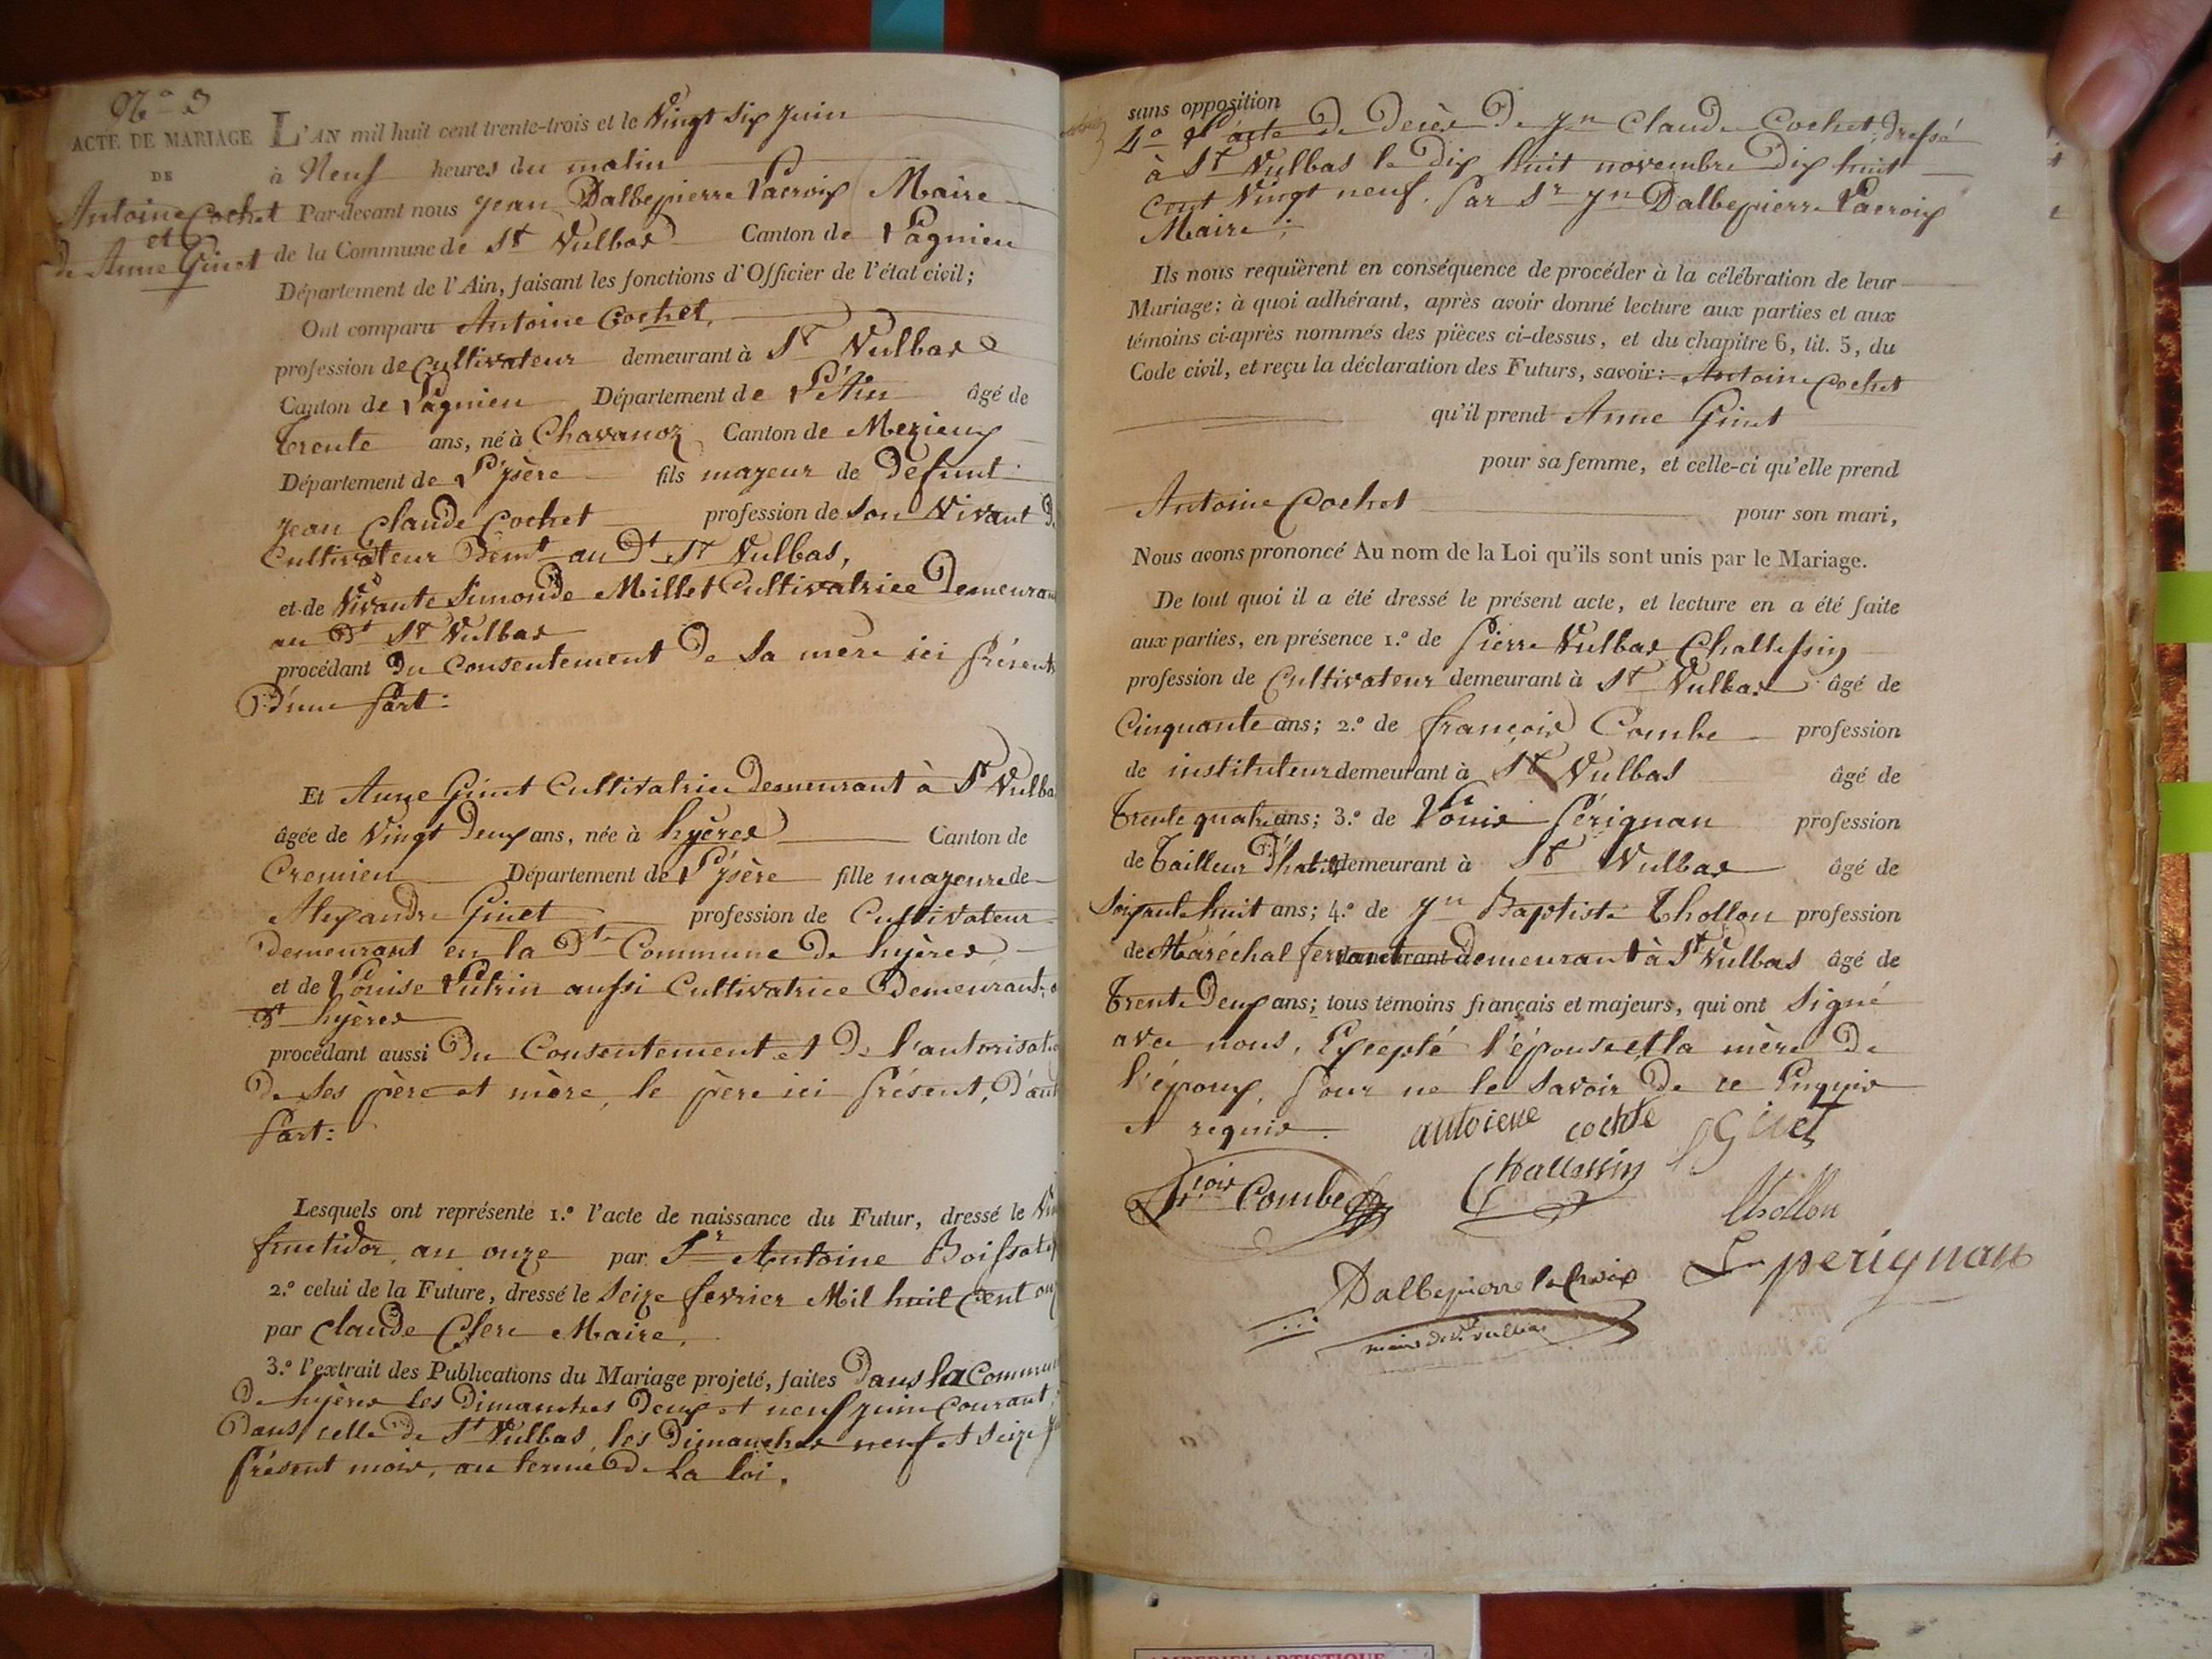 N.° 3
ACTE DE MARIAGE
DE
Antoine Cochet
et
de Anne Ginet
L'AN mil huit cent trente-trois et le Vingt Six Juin
à Neuf heures du matin
Par-devant nous Jean Dalbepierre Lacroix Maire
de la Commune de St Vulbas Canton de Lagnieu
Département de l'Ain, faisant les fonctions d'Officier de l'état civil;
Ont comparu Antoine Cochet,
profession de Cultivateur demeurant à St Vulbas
Canton de Lagnieu Département de L'Ain âgé de
Trente ans, né à Chavanoz Canton de Mezieux
Département de L'ysère fils mayeur de Defunt
Jean Claude Cochet profession de Son Vivant De
Cultivateur Demt au Dt St Vulbas,
et de Vivante Simonde Millet Cultivatrice Demeuran
au Dt St Vulbas
procédant Du Consentement De Sa mère ici présente
D'une part:
Et Anne Ginet Cultivatrice Demeurant à St Vulba
âgée de Vingt Deux ans, née à hyères Canton de
Cremieu Département de L'ysère fille mayeure de
Alexandre Ginet profession de Cultivateur
Demeurant en la Dte Commune De hyères
et de Louise Putrin aussi Cultivatrice Demeurant
Dt hyères
procédant aussi Du Consentement et De l'autorisatio
De Ses père et mère, le père ici présent, D'aut
part:
Lesquels ont représenté 1.° l'acte de naissance du Futur, dressé le
fructidor an onze par Sr Antoine
2.° celui de la Future, dressé le Seize fevrier Mil huit Cent on
par Claude Clere Maire,
3.° l'extrait des Publications du Mariage projeté, faites Dans la Commun
De hyères les Dimanches Deux et neuf Juin Courant,
Dans celle De St Vulbas, les Dimanches neuf et Seize
présent mois, au terme De La loi.
sans opposition
4.° L'acte De Decès De Jn Claude Cochet, Dressé
à St Vulbas le Dix huit novembre Dix huit
Cent Vingt neuf. Par Sr Jn Dalbepierre Lacroix
Maire;
Ils nous requièrent en conséquence de procéder à la célébration de leur
Mariage; à quoi adhérant, après avoir donné lecture aux parties et aux
témoins ci-après nommés des pièces ci-dessus, et du chapitre 6, tit. 5, du
Code civil, et reçu la déclaration des Futurs, savoir: Antoine Cochet
qu'il prend Anne Ginet
pour sa femme, et celle-ci qu'elle prend
Antoine Cochet pour son mari,
Nous avons prononcé Au nom de la Loi qu'ils sont unis par le Mariage.
De tout quoi il a été dressé le présent acte, et lecture en a été faite
aux parties, en présence 1.° de Pierre Vulbas Challessin
profession de Cultivateur demeurant à St Vulbas âgé de
Cinquante ans; 2.° de françois Combe profession
de instituteur demeurant à St Vulbas âgé de
Trente quatre ans; 3.° de Louis Pérignan profession
de Tailleur D'habits demeurant à St Vulbas âgé de
Soixante huit ans; 4.° de Jn Baptiste Thollon profession
de Maréchal ferrant demeurant Demeurant à St Vulbas âgé de
Trente Deux ans; tous témoins français et majeurs, qui ont Signé
avec nous, Excepté l'épouse et la mère De
l'époux, pour ne le Savoir De ce Enquis
et requis.
antoiene cochte Ginet
Fçois Combe Challessin
Thollon
Dalbepierre lacroix L perignan
maire de St vulbas
AMBERIEU ARTISTIQUE